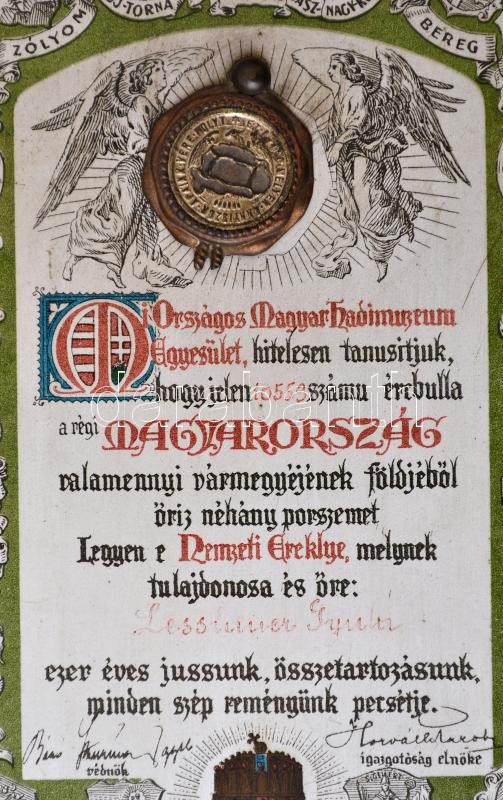 ZÓLYOM
J-TORNA
BEREG
Mi Országos Magyar Hadimuzeum
Egyesület, hitelesen tanusitjuk,
hogy jelen 10553 számu ércbulla
a régi MAGYARORSZÁG
valamennyi vármegyéjének földjéből
őriz néhány porszemet
Legyen e Nemzeti Ereklye, melynek
tulajdonosa és őre:
Gyula
ezer éves jussunk, összetartozásunk,
minden szép reményünk pecsétje.
védnök
igazgatóság elnöke
darabanth